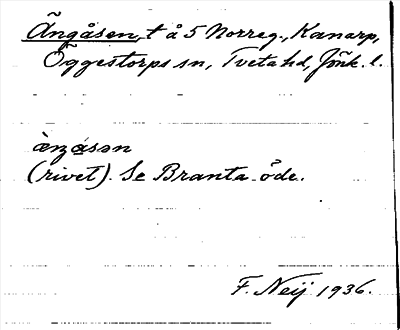 Ängåsen, t å 5 Norreg., Kanarp,
Öggestorps sn, Tveta hd, Jönk. l.
ä̀ŋåsən
(rivet). Se Branta öde.
F. Neij 1936.